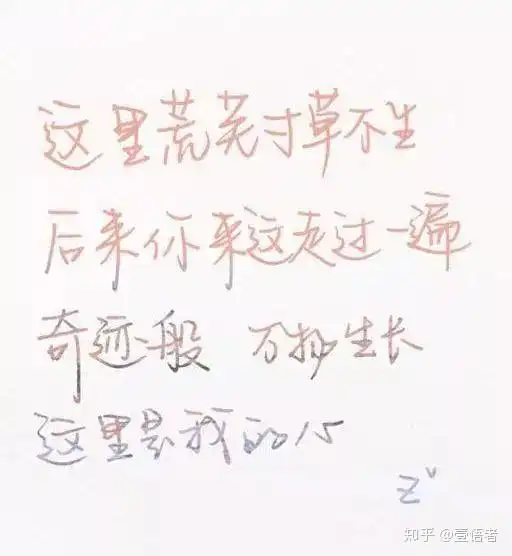 这里荒芜寸草不生
后来你来这走过一遍
奇迹般 万物生长
这里是我的心
Z
知乎 @壹悟者